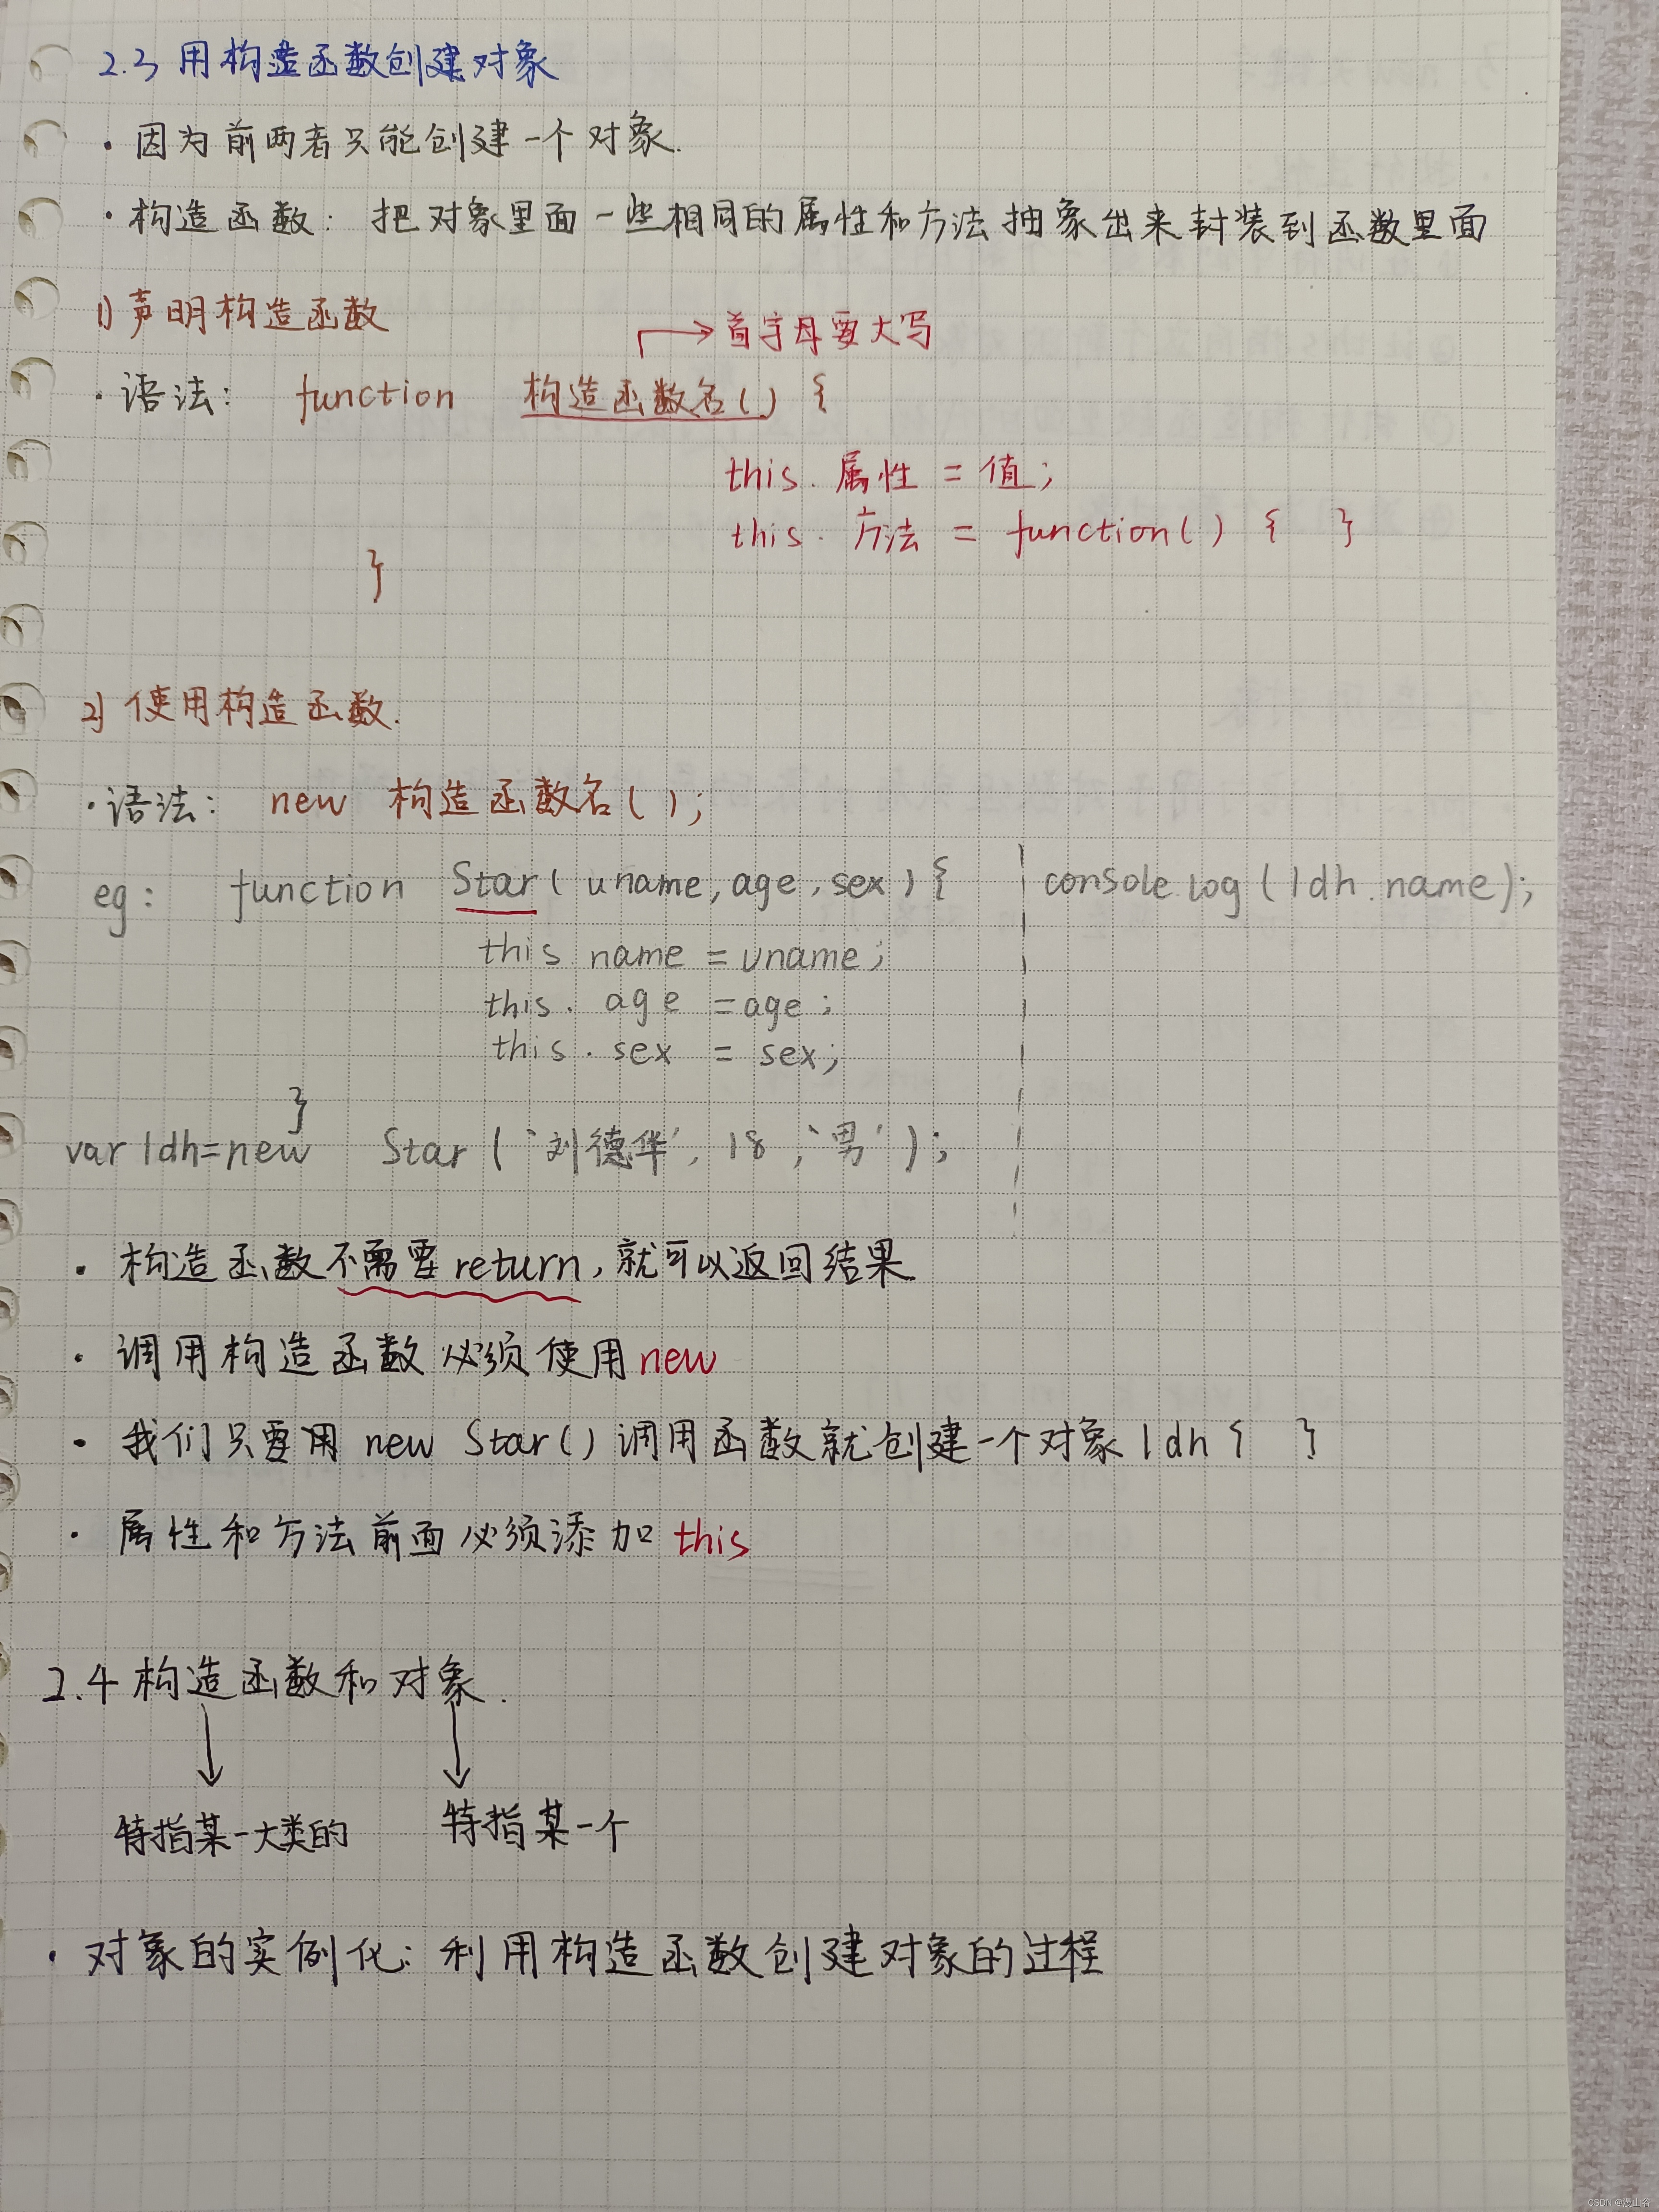 2.3 用构造函数创建对象
· 因为前两者只能创建一个对象.
· 构造函数: 把对象里面一些相同的属性和方法抽象出来封装到函数里面
1) 声明构造函数
首字母要大写
· 语法: function 构造函数名() {
this. 属性 = 值;
this. 方法 = function() { }
}
2) 使用构造函数.
· 语法: new 构造函数名();
eg: function Star( uname, age, sex ) {
console.log(ldh.name);
this name = uname;
this. age = age;
this. sex = sex;
}
var ldh=new Star ('刘德华', 18, '男');
· 构造函数不需要return, 就可以返回结果
· 调用构造函数必须使用new
· 我们只要用 new Star() 调用函数就创建一个对象 ldh { }
· 属性和方法前面必须添加 this
2.4 构造函数和对象.
特指某一大类的 特指某一个
· 对象的实例化: 利用构造函数创建对象的过程
CSDN @漫山谷